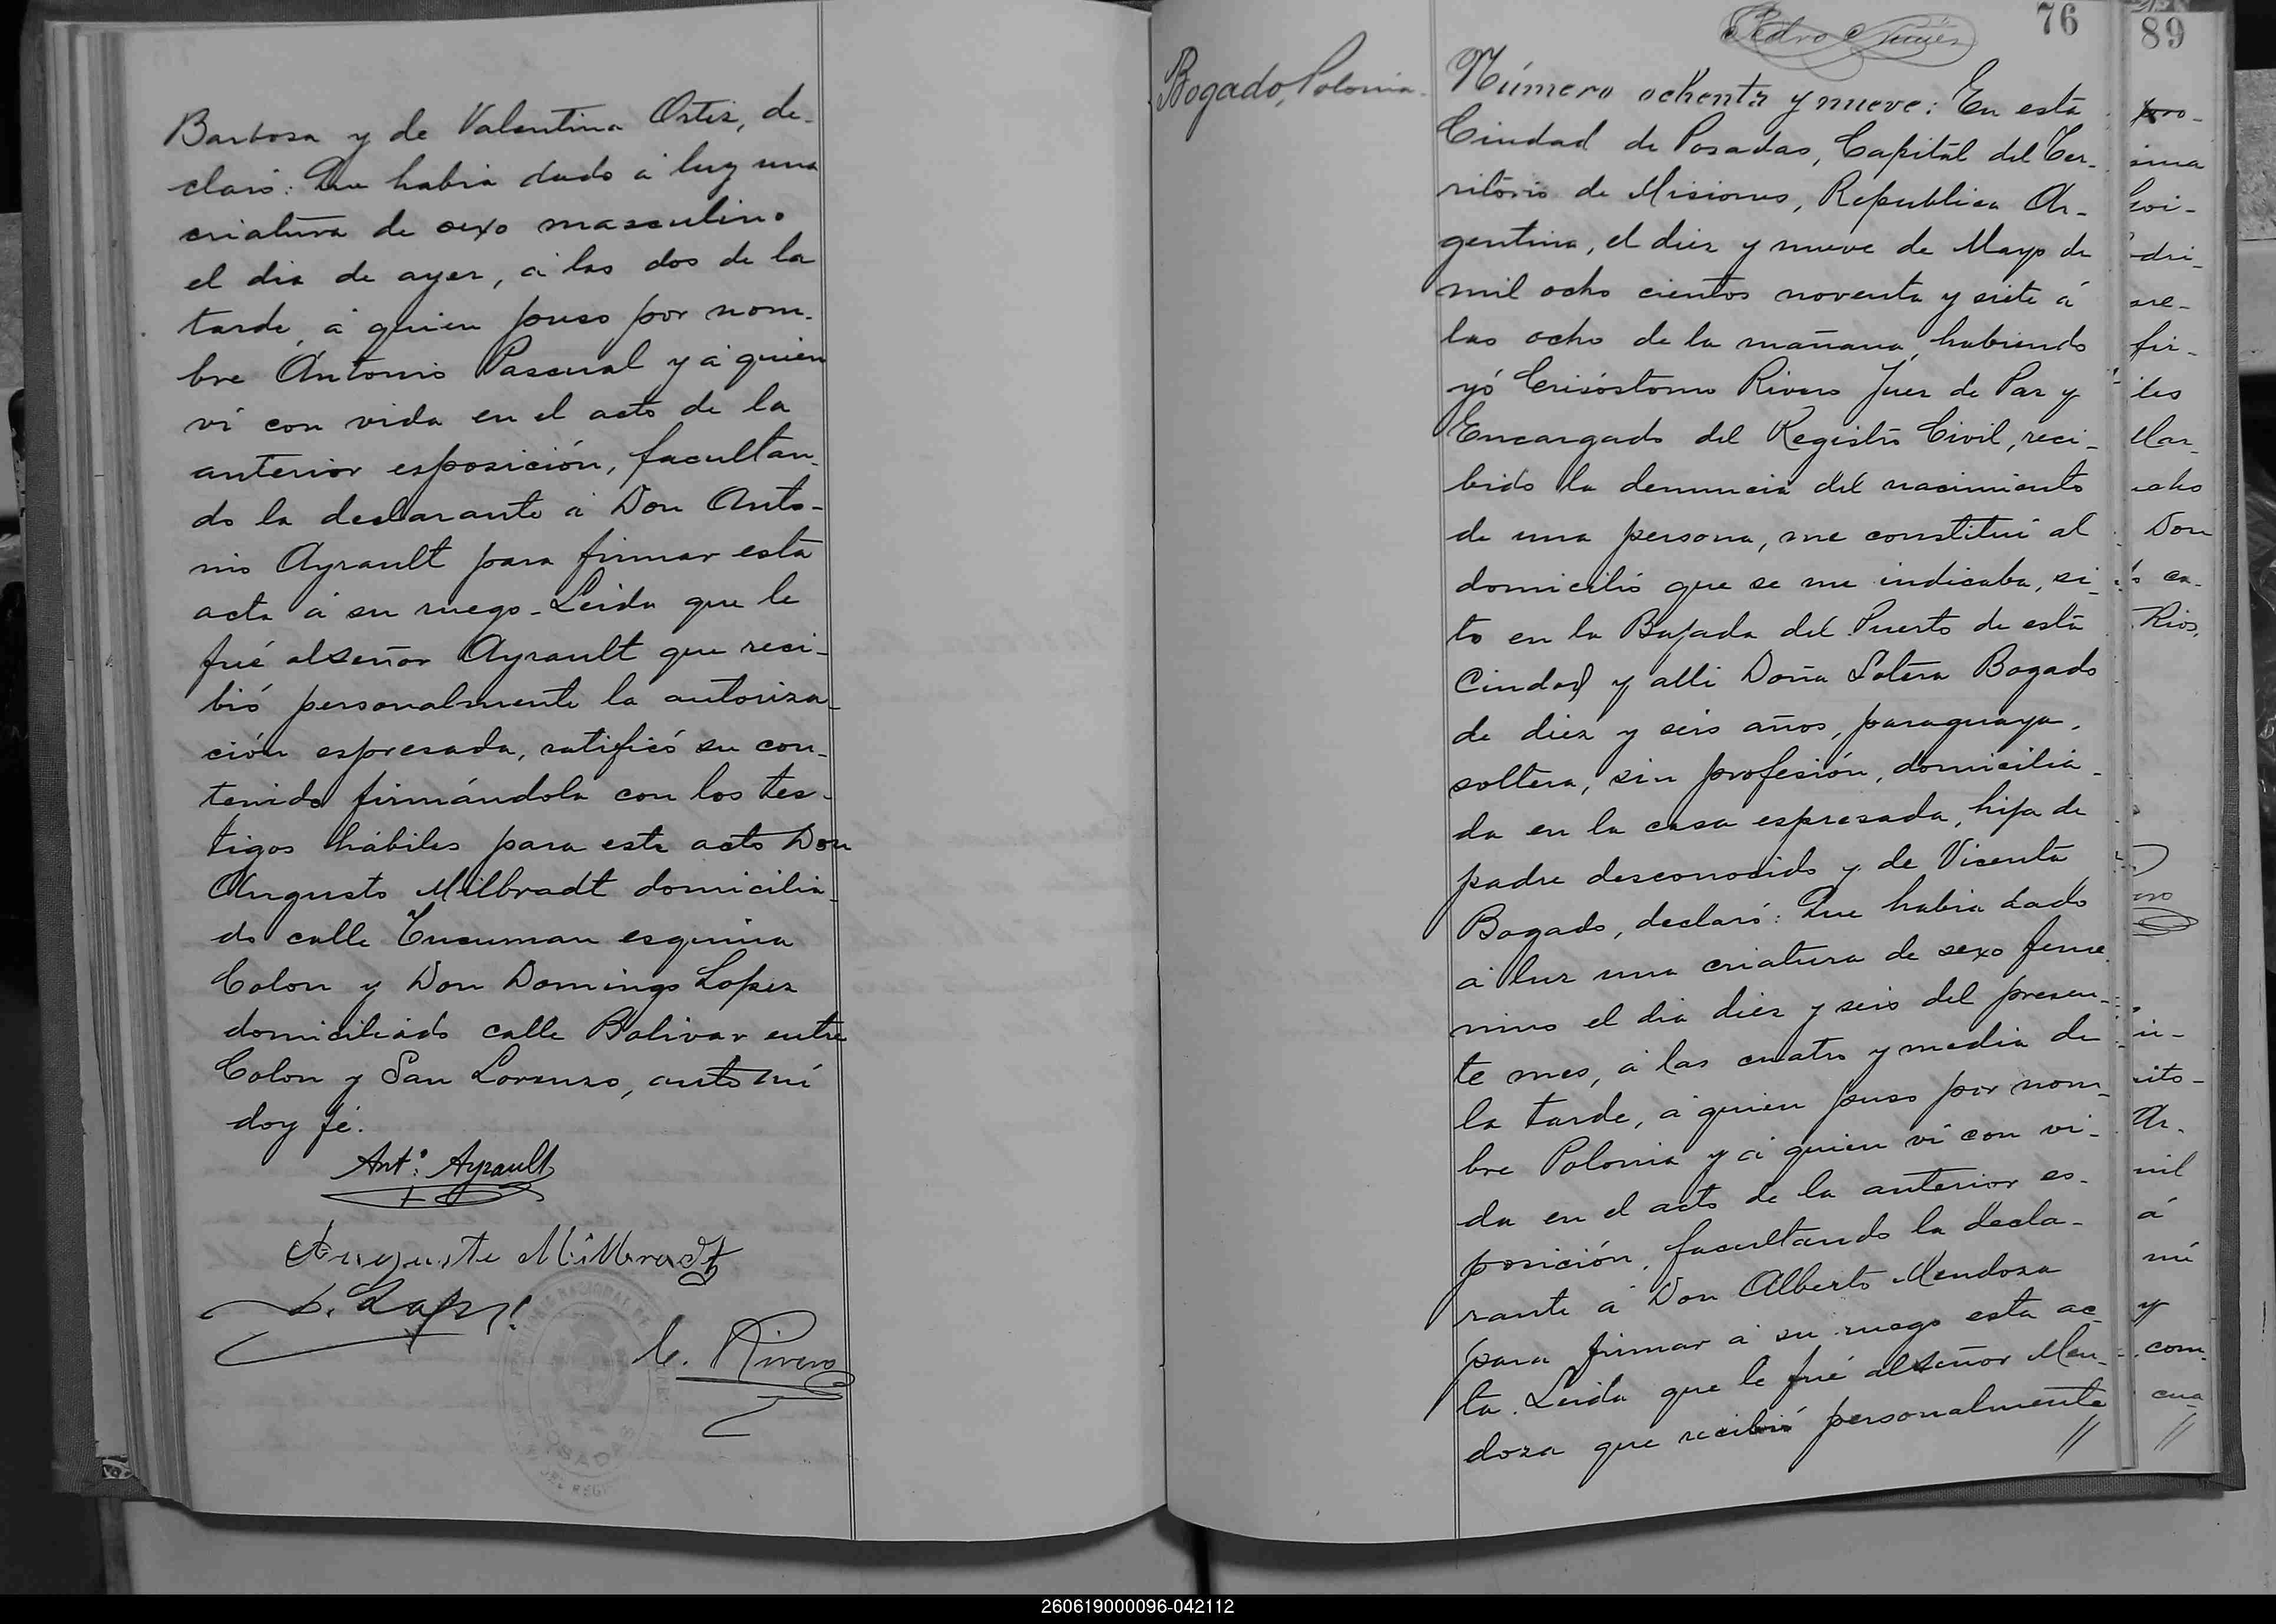 Barbosa y de Valentina Ortiz, de-
claró: Que habia dado á luz una
criatura de sexo masculino
el dia de ayer, á las dos de la
tarde, á quien puso por nom-
bre Antonio Pascual y á quien
ví con vida en el acto de la
anterior esposición, facultan-
do la declarante á Don Anto-
nio Ayrault para firmar esta
acta á su ruego - Leida que le
fué al señor Ayrault que reci-
bió personalmente la autoriza-
ción espresada, ratificó su con-
tenido firmándola con los tes-
tigos hábiles para este acto Don
Augusto Milbradt domicilia-
do calle Tucuman esquina
Colon y Don Domingo Lopez
domiciliado calle Bolivar entre
Colon y San Lorenzo, ante mí
doy fé.
Ant.º Ayrault
Auguste Milbradt
D. Lopez
C. Rivero
POSADAS
76
Bogado, Polonia.
Número ochenta y nueve: En esta
Ciudad de Posadas, Capital del Ter-
ritorio de Misiones, Republica Ar-
gentina, el diez y nueve de Mayo de
mil ocho cientos noventa y siete á
las ocho de la mañana, habiendo
yó Crisóstomo Rivero Juez de Paz y
Encargado del Registro Civil, reci-
bido la denuncia del nacimiento
de una persona, me constituí al
domicilio que se me indicaba, si-
to en la Bajada del Puerto de esta
Ciudad y alli Doña Sotera Bogado
de diez y seis años, paraguaya,
soltera, sin profesión, domicilia-
da en la casa espresada, hija de
padre desconocido y de Vicenta
Bogado, declaró: Que habia dado
á luz una criatura de sexo feme
nino el dia diez y seis del presen-
te mes, á las cuatro y media de
la tarde, á quien puso por nom-
bre Polonia y á quien ví con vi-
da en el acto de la anterior es-
posición, facultando la decla-
rante á Don Alberto Mendoza
para firmar á su ruego esta ac-
ta. Leida que le fué al señor Men-
doza que recibió personalmente
//
89
ima
dri-
fir-
Don
Rios,
Ar-
mil
á
mi
y
com-
//
260619000096-042112